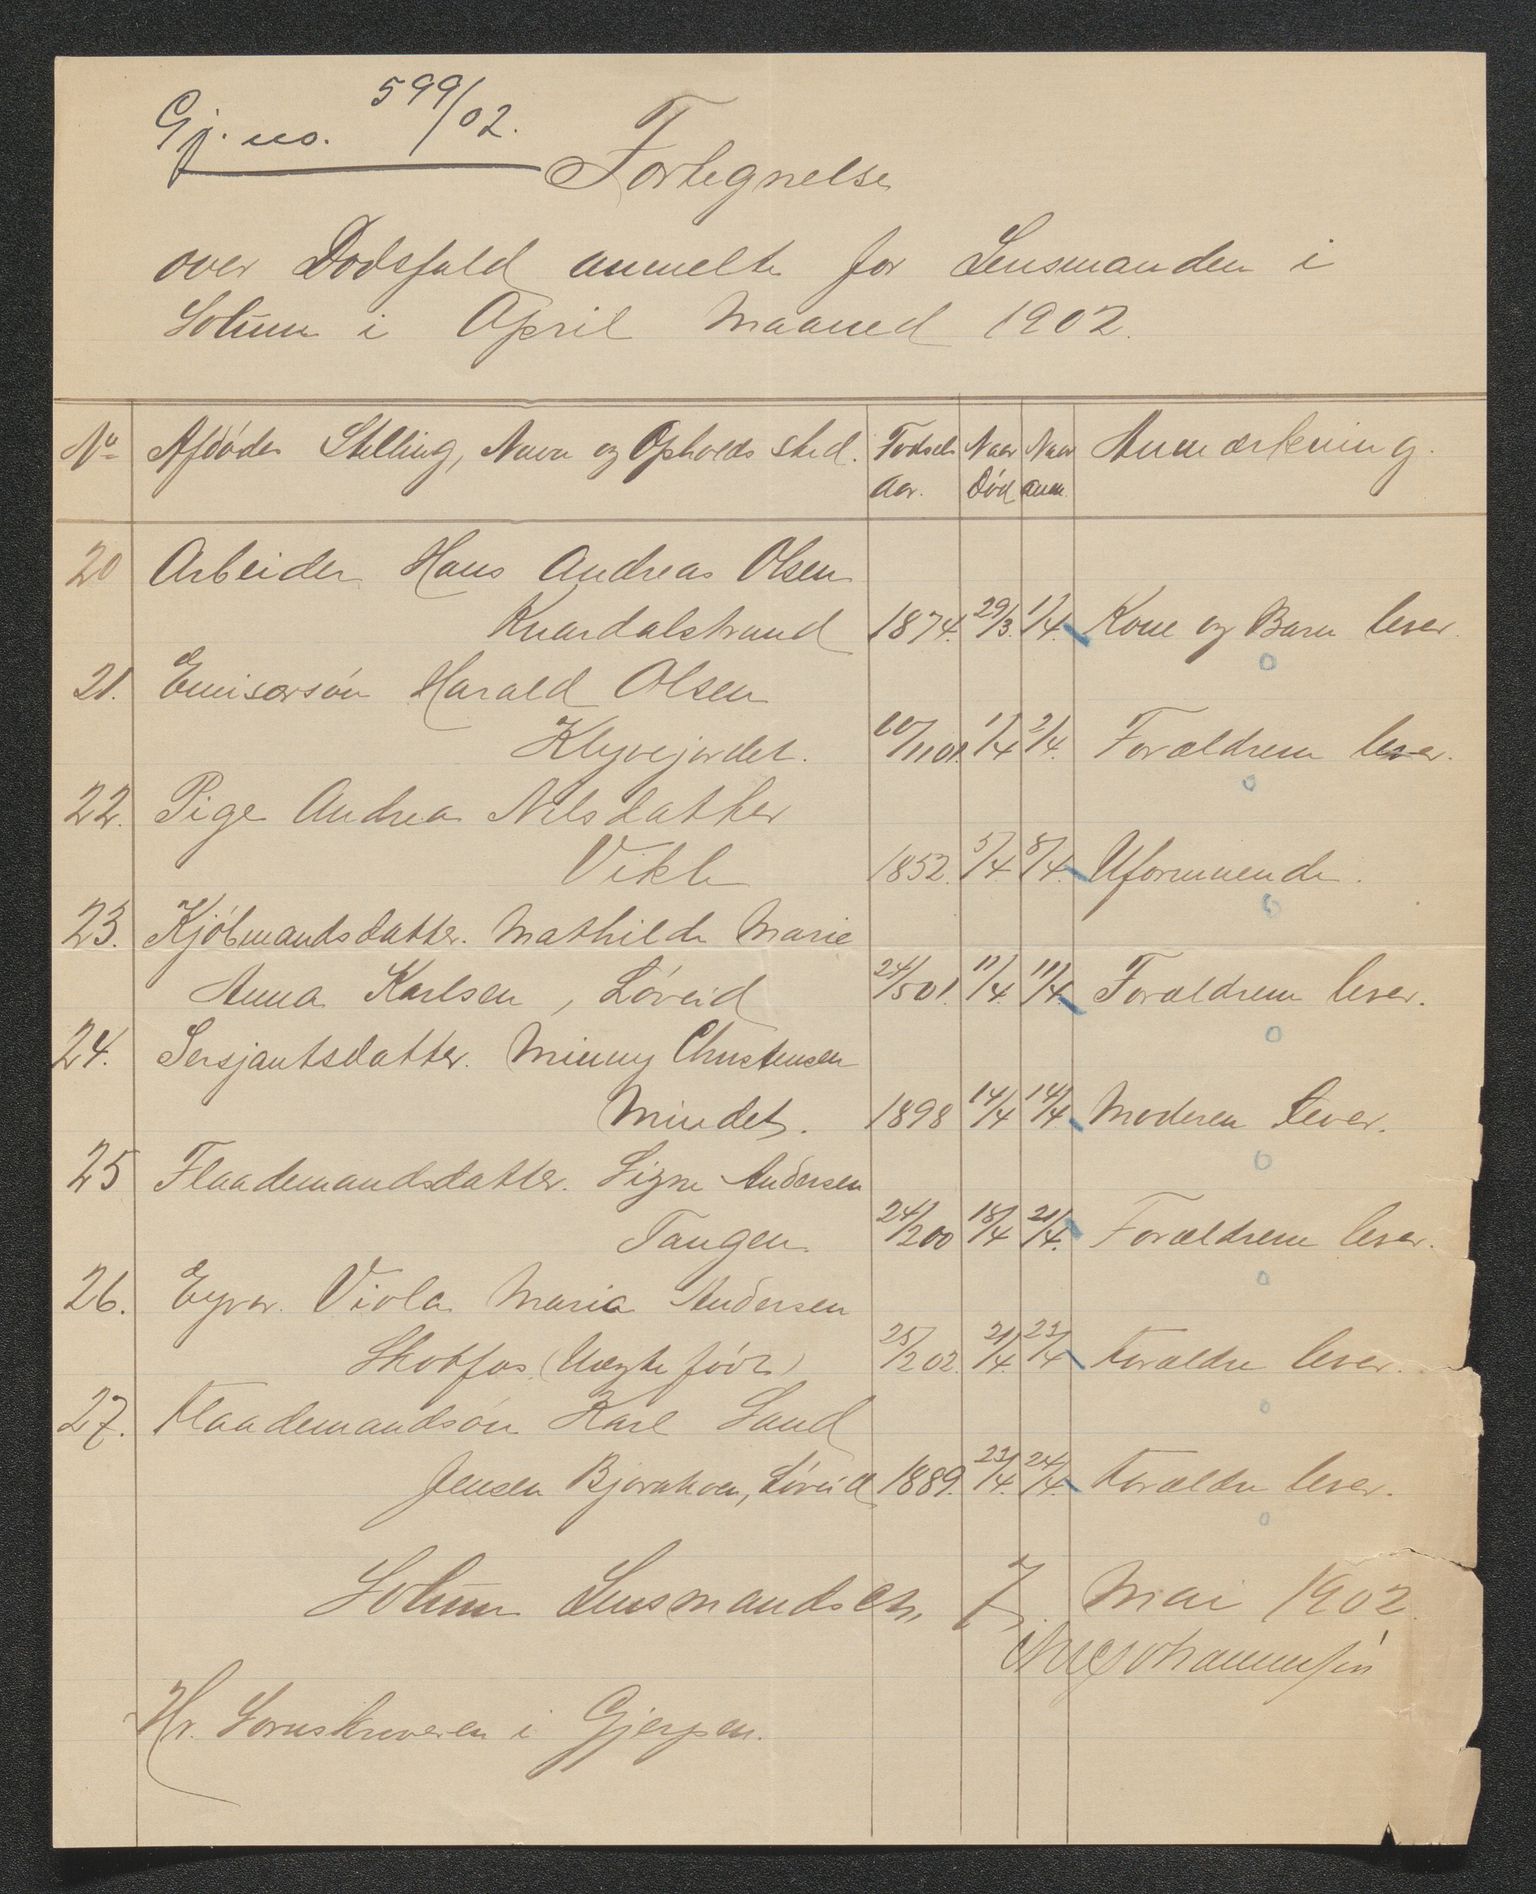 Gj. no. 599/02.
Fortegnelse
over Dødsfald anmeldte for Lensmanden i
Solum i April Maaned 1902.
No Afdødes Stilling, Navn og Opholds sted. Fødsels Naar Naar Anmærkning.
Aar. Død anm.
20 Arbeider Hans Andreas Olsen
Knardalstrand 1874. 29/3. 1/4. Kone og Barn lever.
21. Harald Olsen
Klyvejordet. /11 01. 1/4 2/4. Forældrene lever.
22. Pige Andrea Nilsdatter
Vikle 1852. 5/4. 8/4. Uformuende.
23. Kjøbmandsdatter. Mathilde Marie
Anna Karlsen, Løveid 24/5 01. 11/4. 11/4. Forældrene lever.
24. Sersjantsdatter. Minny Christensen
Mindet. 1898 14/4 14/4. Moderen lever.
25 Flaademandsdatter. Signe Andersen
Tangen. 24/2 00 18/4 21/4. Forældrene lever.
26. Viola Maria Andersen
Skotfos. (Uægte født) 25/2 02. 21/4. 23/4 Forældre lever.
27. Flaademandsøn Karl Sand
Jensen Løveid 1889. 23/4. 24/4. Forældre lever.
Solum Lensmandsktr. 7. Mai 1902.
Hr. Sorenskriveren i Gjerpen.